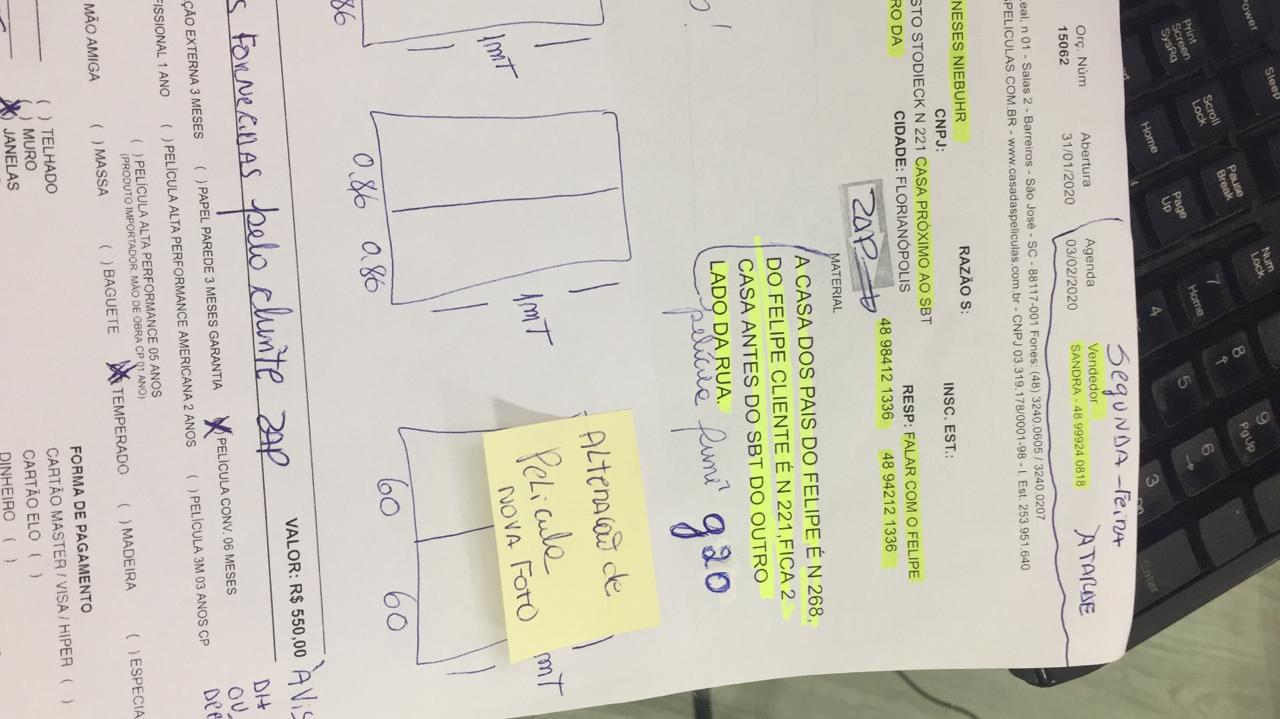 SEGUNDA-FEIRA
ÀTARDE
Orç. Núm
15062
Abertura
31/01/2020
Agenda
03/02/2020
Vendedor
SANDRA - 48 99924 0818
eal, n 01 - Salas 2 - Barreiros - São José - SC - 88117-001 Fones: (48) 3240.0605 / 3240.0207
PELICULAS.COM.BR - www.casadaspeliculas.com.br - CNPJ 03.319.178/0001-98 - I. Est. 253.951.640
NESES NIEBUHR
RAZÃO S:
CNPJ:
INSC. EST.:
STO STODIECK N 221 CASA PRÓXIMO AO SBT
RESP: FALAR COM O FELIPE
RO DA
CIDADE: FLORIANÓPOLIS
48 98412 1336
48 94212 1336
ZAP
MATERIAL
A CASA DOS PAIS DO FELIPE É N 268,
DO FELIPE CLIENTE É N 221,FICA 2
CASA ANTES DO SBT DO OUTRO
LADO DA RUA.
pelicula fumê g20
1mT
1mT
mT
ALTERAÇÃO de
Pelicula
NOVA FOTO
0.86
0.86 0.86
60 60
s Fornecidas pelo cliente ZAP
VALOR: R$ 550,00
À Vis
DH
OU
DEP
ÇÃO EXTERNA 3 MESES
( ) PAPEL PAREDE 3 MESES GARANTIA
X PELÍCULA CONV. 06 MESES
FISSIONAL 1 ANO
( ) PELÍCULA ALTA PERFORMANCE AMERICANA 2 ANOS
( ) PELÍCULA 3M 03 ANOS CP
( ) PELÍCULA ALTA PERFORMANCE 05 ANOS
(PRODUTO IMPORTADOR, MÃO DE OBRA CP 01 ANO)
MÃO AMIGA
( ) MASSA
( ) BAGUETE
X TEMPERADO
( ) MADEIRA
( ) ESPECIA
( ) TELHADO
( ) MURO
X JANELAS
FORMA DE PAGAMENTO
CARTÃO MASTER / VISA / HIPER ( )
CARTÃO ELO ( )
DINHEIRO ( )
Power
Print
Screen
SysRq
Scroll
Lock
Pause
Break
Sleep
Home
Page
Up
Num
Lock
7
Home
8
9
PgUp
4
5
6
3
Enter